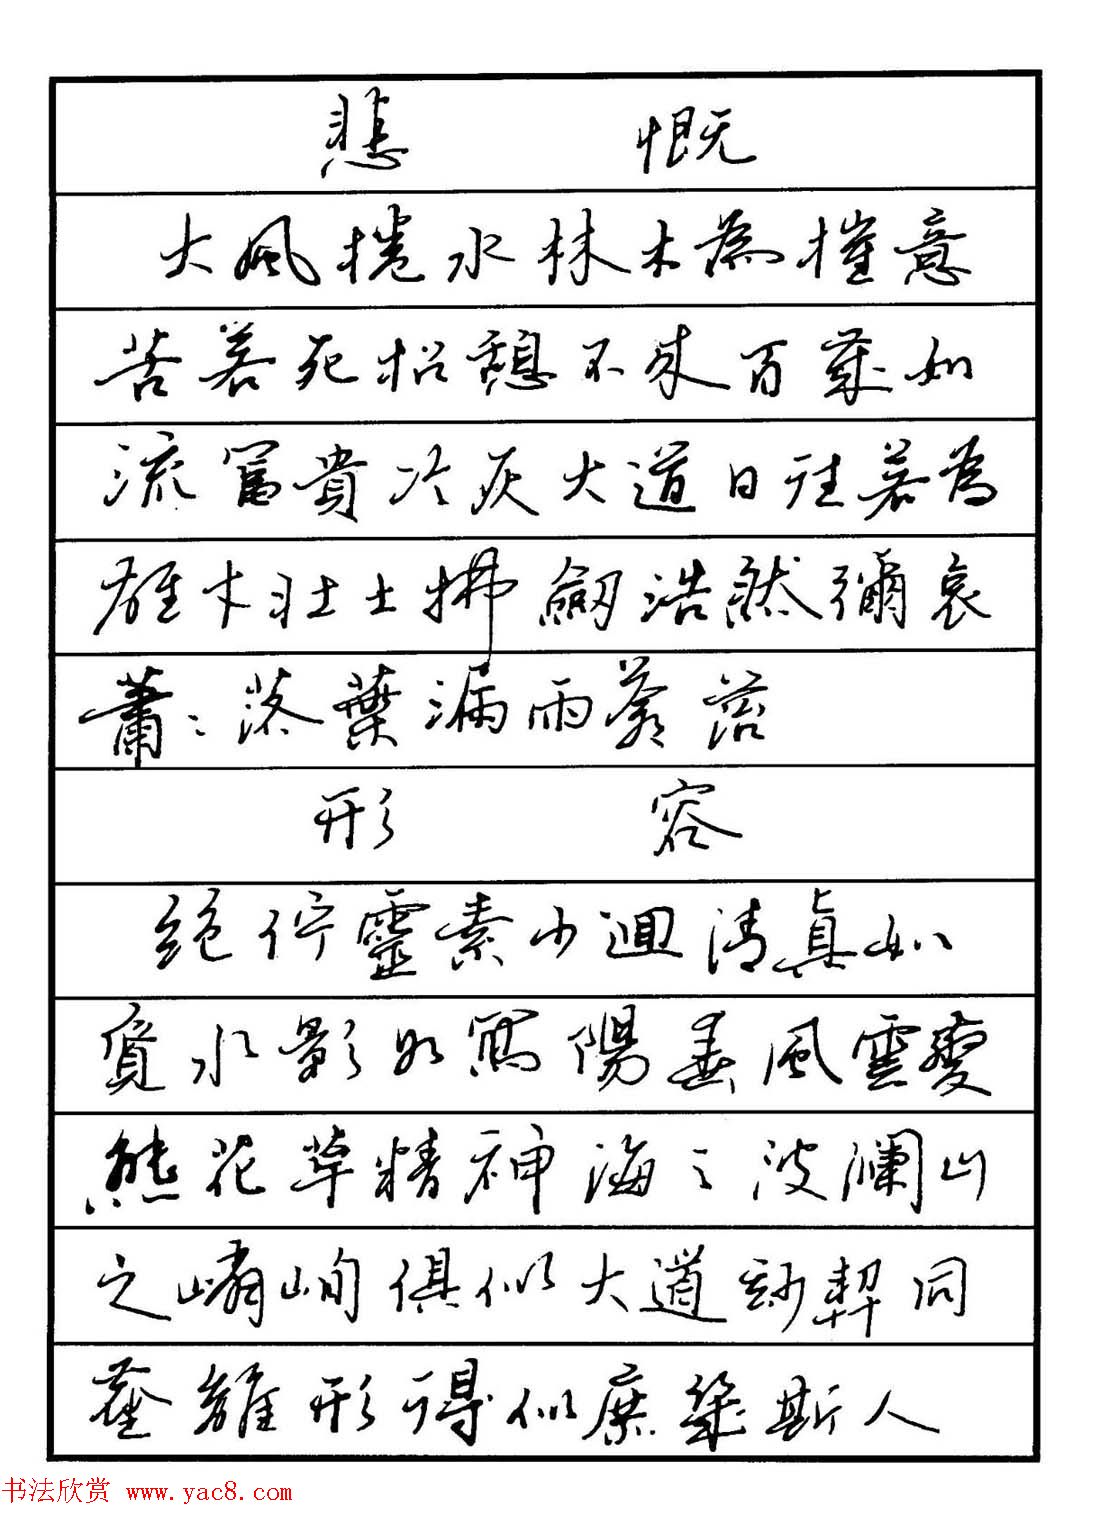 悲慨
大風捲水林木為摧意
苦若死招憩不來百歲如
流富貴冷灰大道日往若為
雄才壯士拂劒浩然彌哀
蕭〻落葉漏雨蒼苔
形容
絕佇靈素少迴清真如
覓水影如寫陽春風雲變
態花草精神海之波瀾山
之嶙峋俱似大道妙契同
塵離形得似庶幾斯人
书法欣赏 www.yac8.com